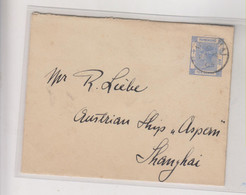 Mr R. Liebe
Austrian Ship "Aspern"
Shanghai